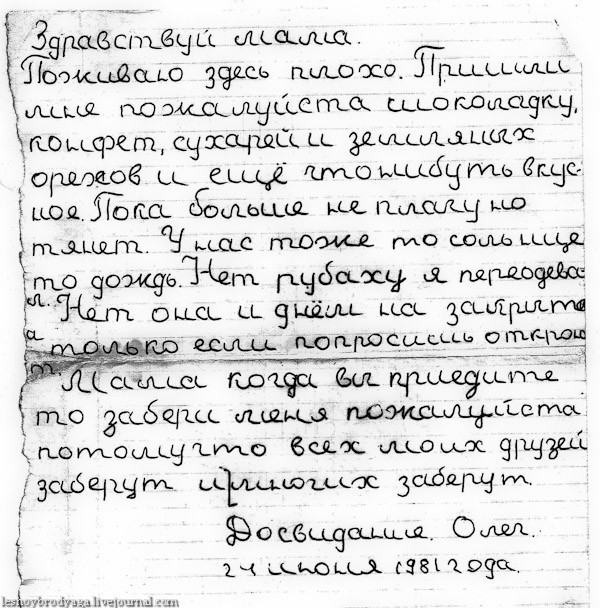 Здравствуй мама.
Поживаю здесь плохо. Пришли
мне пожалуйста шоколадку,
конфет, сухарей и земляных
орехов и ещё чтонибуть вкус-
ное. Пока больше не плачу но
тянет. У нас тоже то солнце
то дождь. Нет рубаху я переодева-
л. Нет она и днём на закрыта
а только если попросишь откроют
Мама когда вы приедите
то забери меня пожалуйста
потомучто всех моих друзей
заберут и многих заберут.
Досвидание. Олег.
24 июня 1981 года.
lesnoybrodyaga.livejournal.com